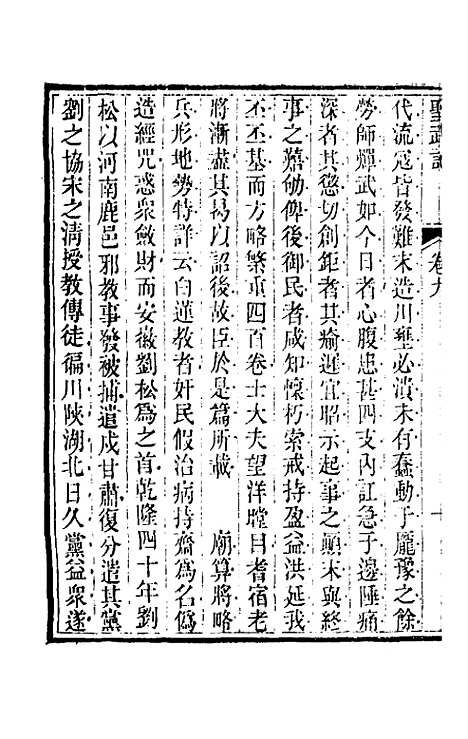 聖武記
卷九
代流寇皆發難末造川壅必潰未有蠢動于龐豫之餘
勞師燀武如今日者心腹患甚四支內訌急于邊陲痛
深者其懲切創鉅者其瘉遲宜昭示起事之顛末與終
事之囏劬俾後御民者咸知懍朽索戒持盈益洪延我
丕丕基而方略繁重四百卷士大夫望洋瞠目耆宿老
將漸盡其曷以詔後故臣於是篇所載　廟算將略
兵形地勢特詳云白蓮教者奸民假治病持齋爲名僞
造經咒惑衆斂財而安徽劉松爲之首乾隆四十年劉
松以河南鹿邑邪教事發被捕遣戍甘肅復分遣其黨
劉之協宋之清授教傳徒徧川陝湖北日久黨益衆遂